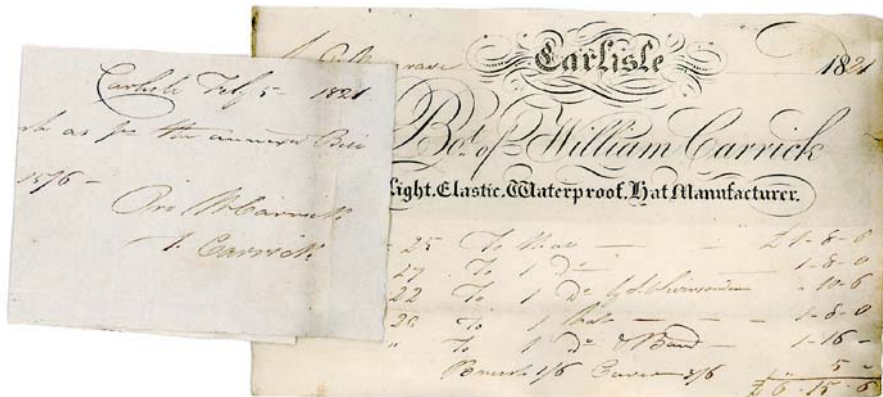 Carlisle Feby 5 - 1821
as per the annexed Bill
15/6 -
Pro W Carrick
J. Carrick
Carlisle
1821
Bot. of William Carrick
Light. Elastic. Waterproof. Hat Manufacturer.
25 To 1 Hat — £ 1 - 8 - 0
27 To 1 Do 1 - 8 - 0
22 To 1 Do " 10 - 6
20 To 1 Hat — 1 - 8 - 0
" To 1 Do & Band — 1 - 16 -
Brush 1/6 Cover 3/6 " 5 "
£ 6 - 15 - 6